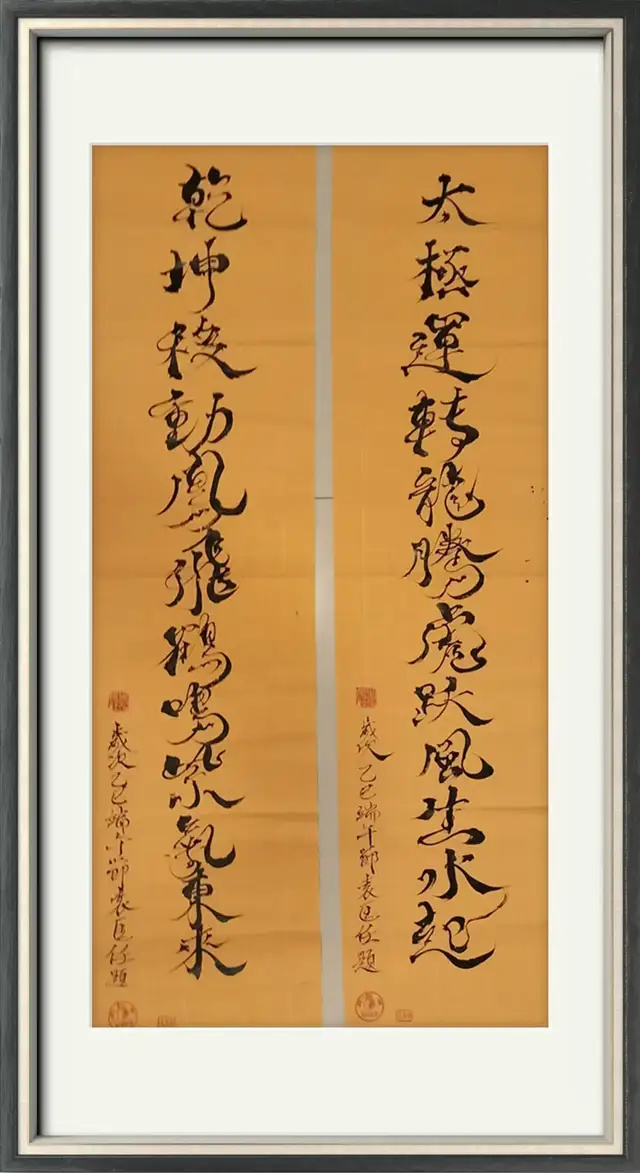 太極運轉龍騰虎跃風生水起
歲次乙巳端午節袁任題
乾坤動鳳飛鶴鳴紫氣東來
歲次乙巳端午節袁任題